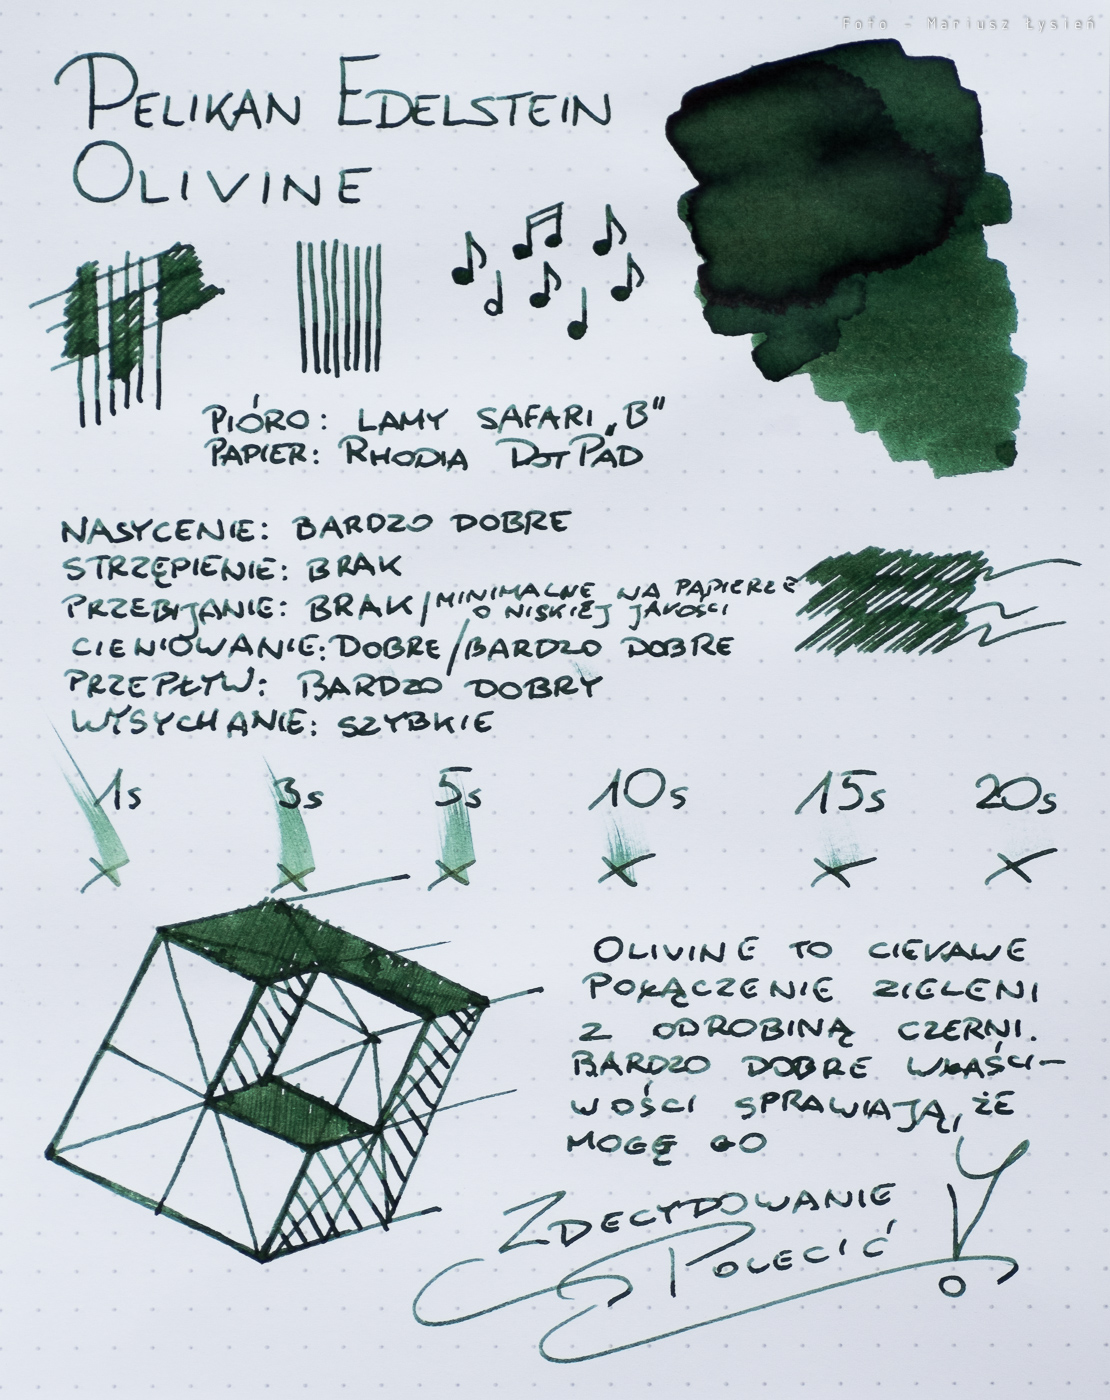 Foto - Mariusz Łysień
PELIKAN EDELSTEIN
OLIVINE
PIÓRO: LAMY SAFARI „B"
PAPIER: RHODIA DOTPAD
NASYCENIE: BARDZO DOBRE
STRZĘPIENIE: BRAK
PRZEBIJANIE: BRAK/MINIMALNE NA PAPIERZE
O NISKIEJ JAKOŚCI
CIENIOWANIE: DOBRE/BARDZO DOBRE
PRZEPŁYW: BARDZO DOBRY
WYSYCHANIE: SZYBKIE
1s 3s 5s 10s 15s 20s
OLIVINE TO CIEKAWE
POŁĄCZENIE ZIELENI
Z ODROBINĄ CZERNI.
BARDZO DOBRE WŁAŚCI-
WOŚCI SPRAWIAJĄ, ŻE
MOGĘ GO
ZDECYDOWANIE
POLECIĆ!